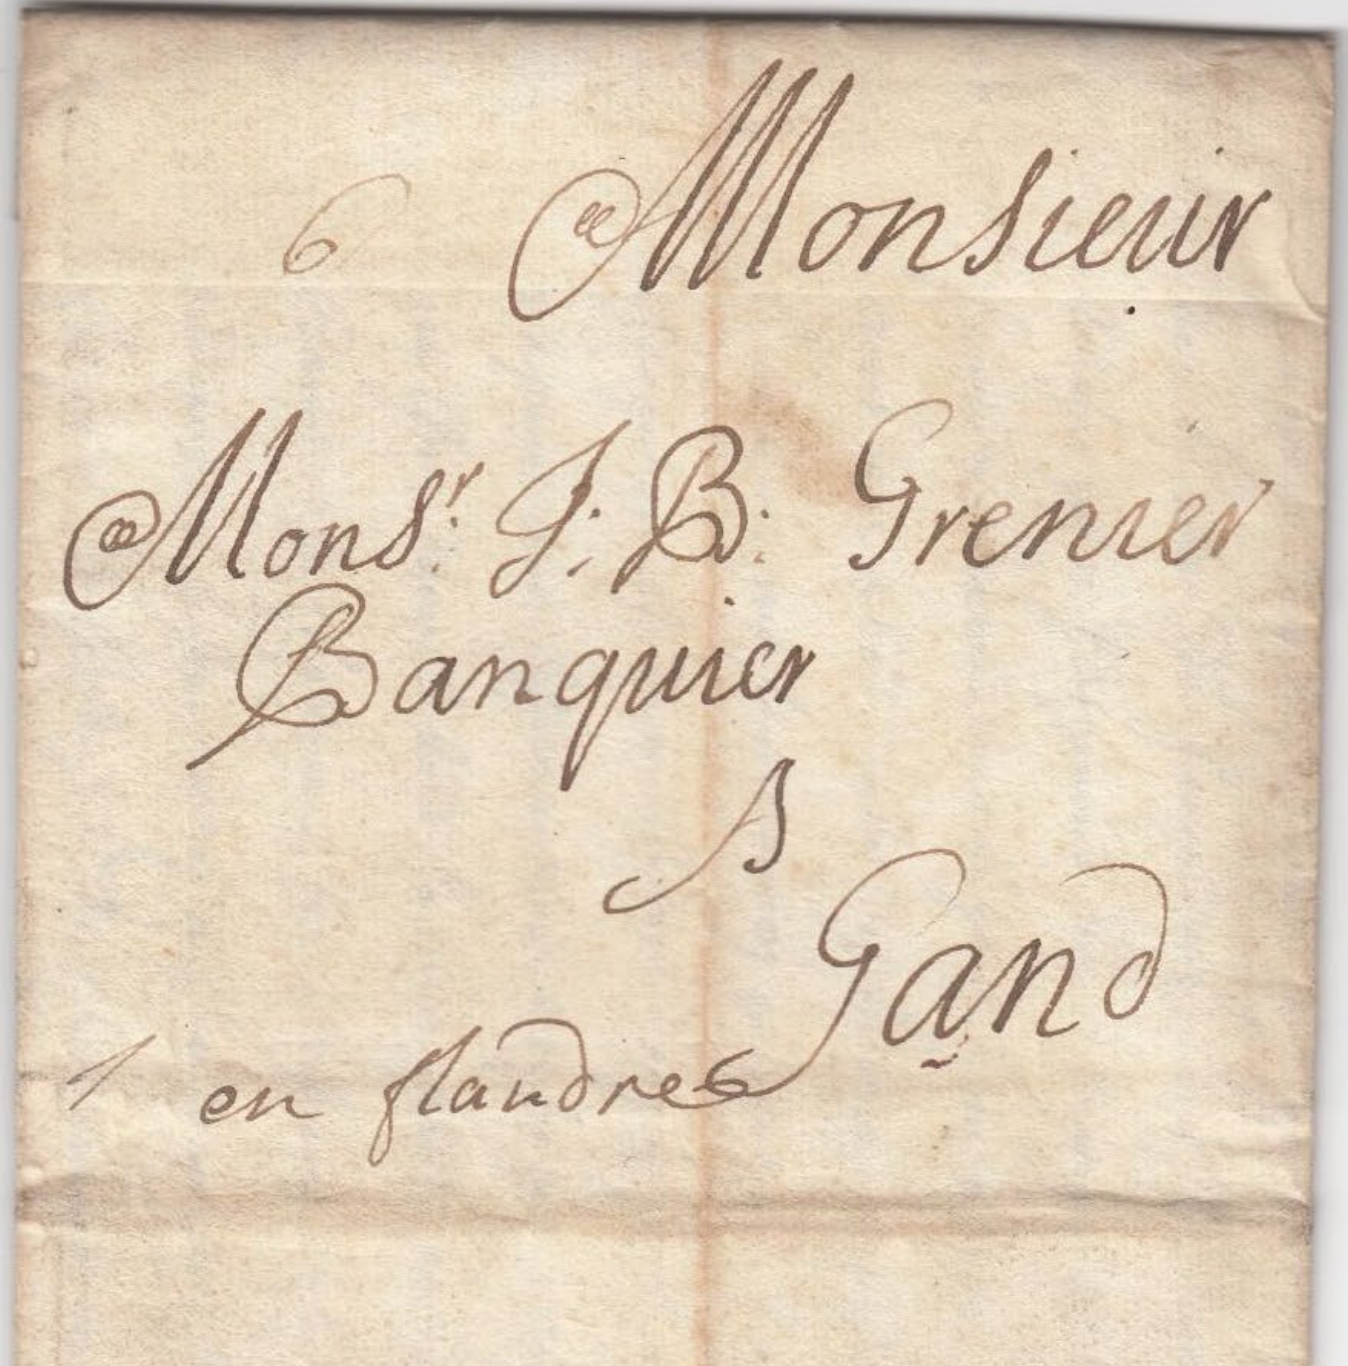 6 Monsieur
Monsr: J: B: Grenier
Banquier
A
Gand
en flandres